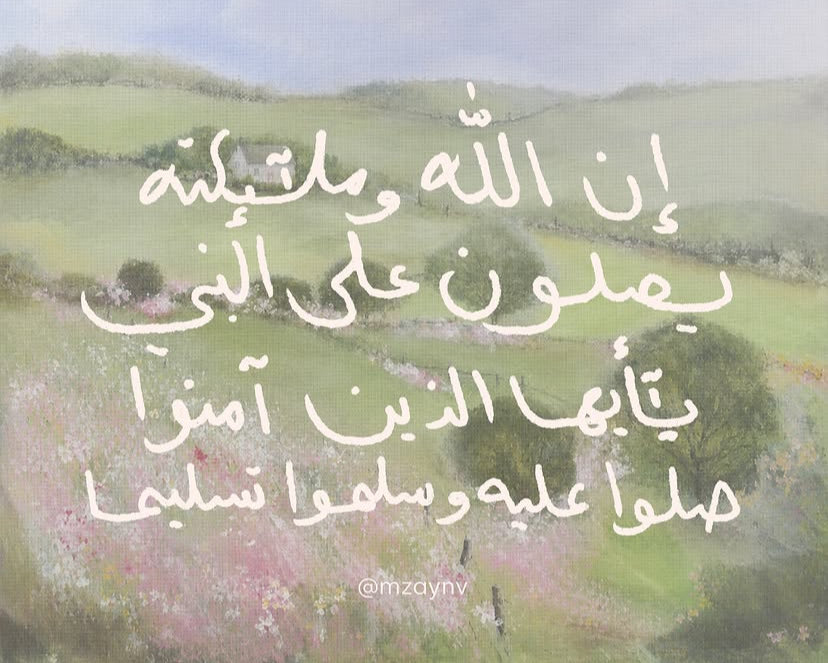 إن الله وملٰئكته
يصلون على النبي
يٰأيها الذين آمنوا
صلوا عليه وسلموا تسليما
@mzaynv